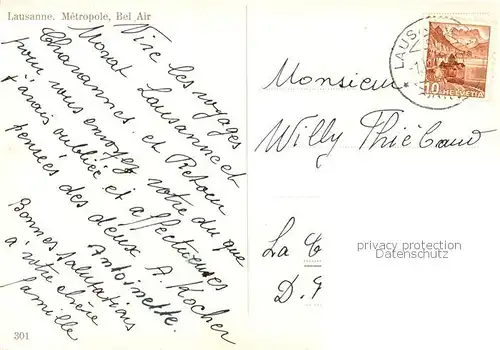 Lausanne. Métropole, Bel Air
Vive les voyages
Morat Lausanne et
Chavannes et Retour
pour vous envoyer votre du que
j'avais oubliée et affectueuses
pensées des deux A. Kocher
Antoinette.
Bonnes salutations
à votre chère
famille
301
LAUS
10 HELVETIA
Monsieur
Willy Thiébaud
La C
D.
privacy protection
Datenschutz